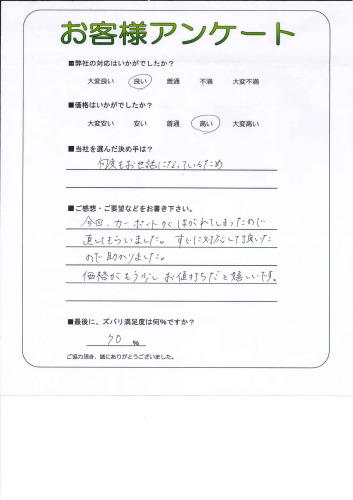 お客様アンケート
■弊社の対応はいかがでしたか？
大変良い 良い 普通 不満 大変不満
■価格はいかがでしたか？
大変安い 安い 普通 高い 大変高い
■当社を選んだ決め手は？
何度もお世話になっているため
■ご感想・ご要望などをお書き下さい。
今回、カーポートがはがれてしまったので
直してもらいました。すぐに対応して頂いた
ので助かりました。
価格がもう少しお値打ちだと嬉しいです。
■最後に、ズバリ満足度は何％ですか？
70 ％
ご協力頂き、誠にありがとうございました。